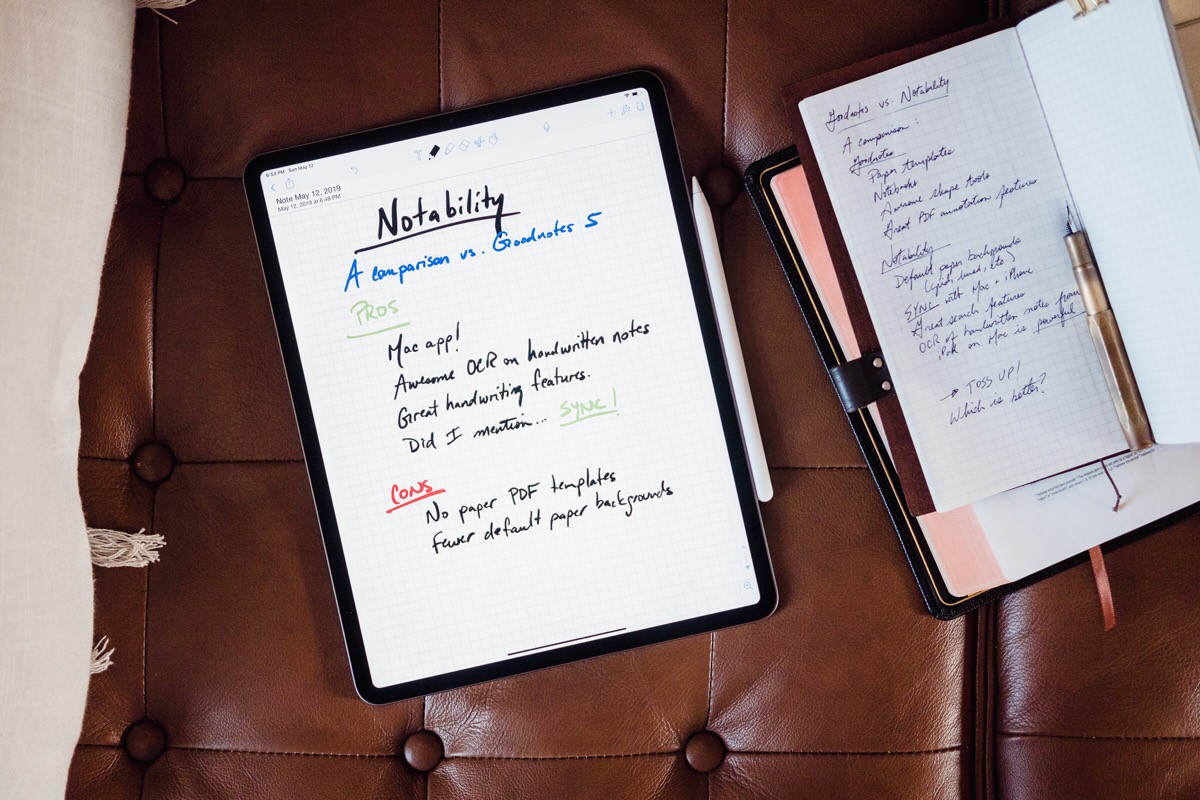 6:53 PM Sun May 12
Note May 12, 2019
May 12, 2019 at 6:48 PM
Notability
A comparison vs. Goodnotes 5
PROS
Mac app!
Awesome OCR on handwritten notes
Great handwriting features.
Did I mention... SYNC!
CONS
No paper PDF templates
Fewer default paper backgrounds
Goodnotes vs. Notability
A comparison:
Goodnotes
Paper templates
Notebooks
Awesome shape tools
Great PDF annotation features
Notability
Default paper backgrounds
(grid, lined, etc)
SYNC with Mac + iPhone
Great search features
OCR of handwritten notes from
iPad on Mac is powerful
→ TOSS UP!
Which is better?